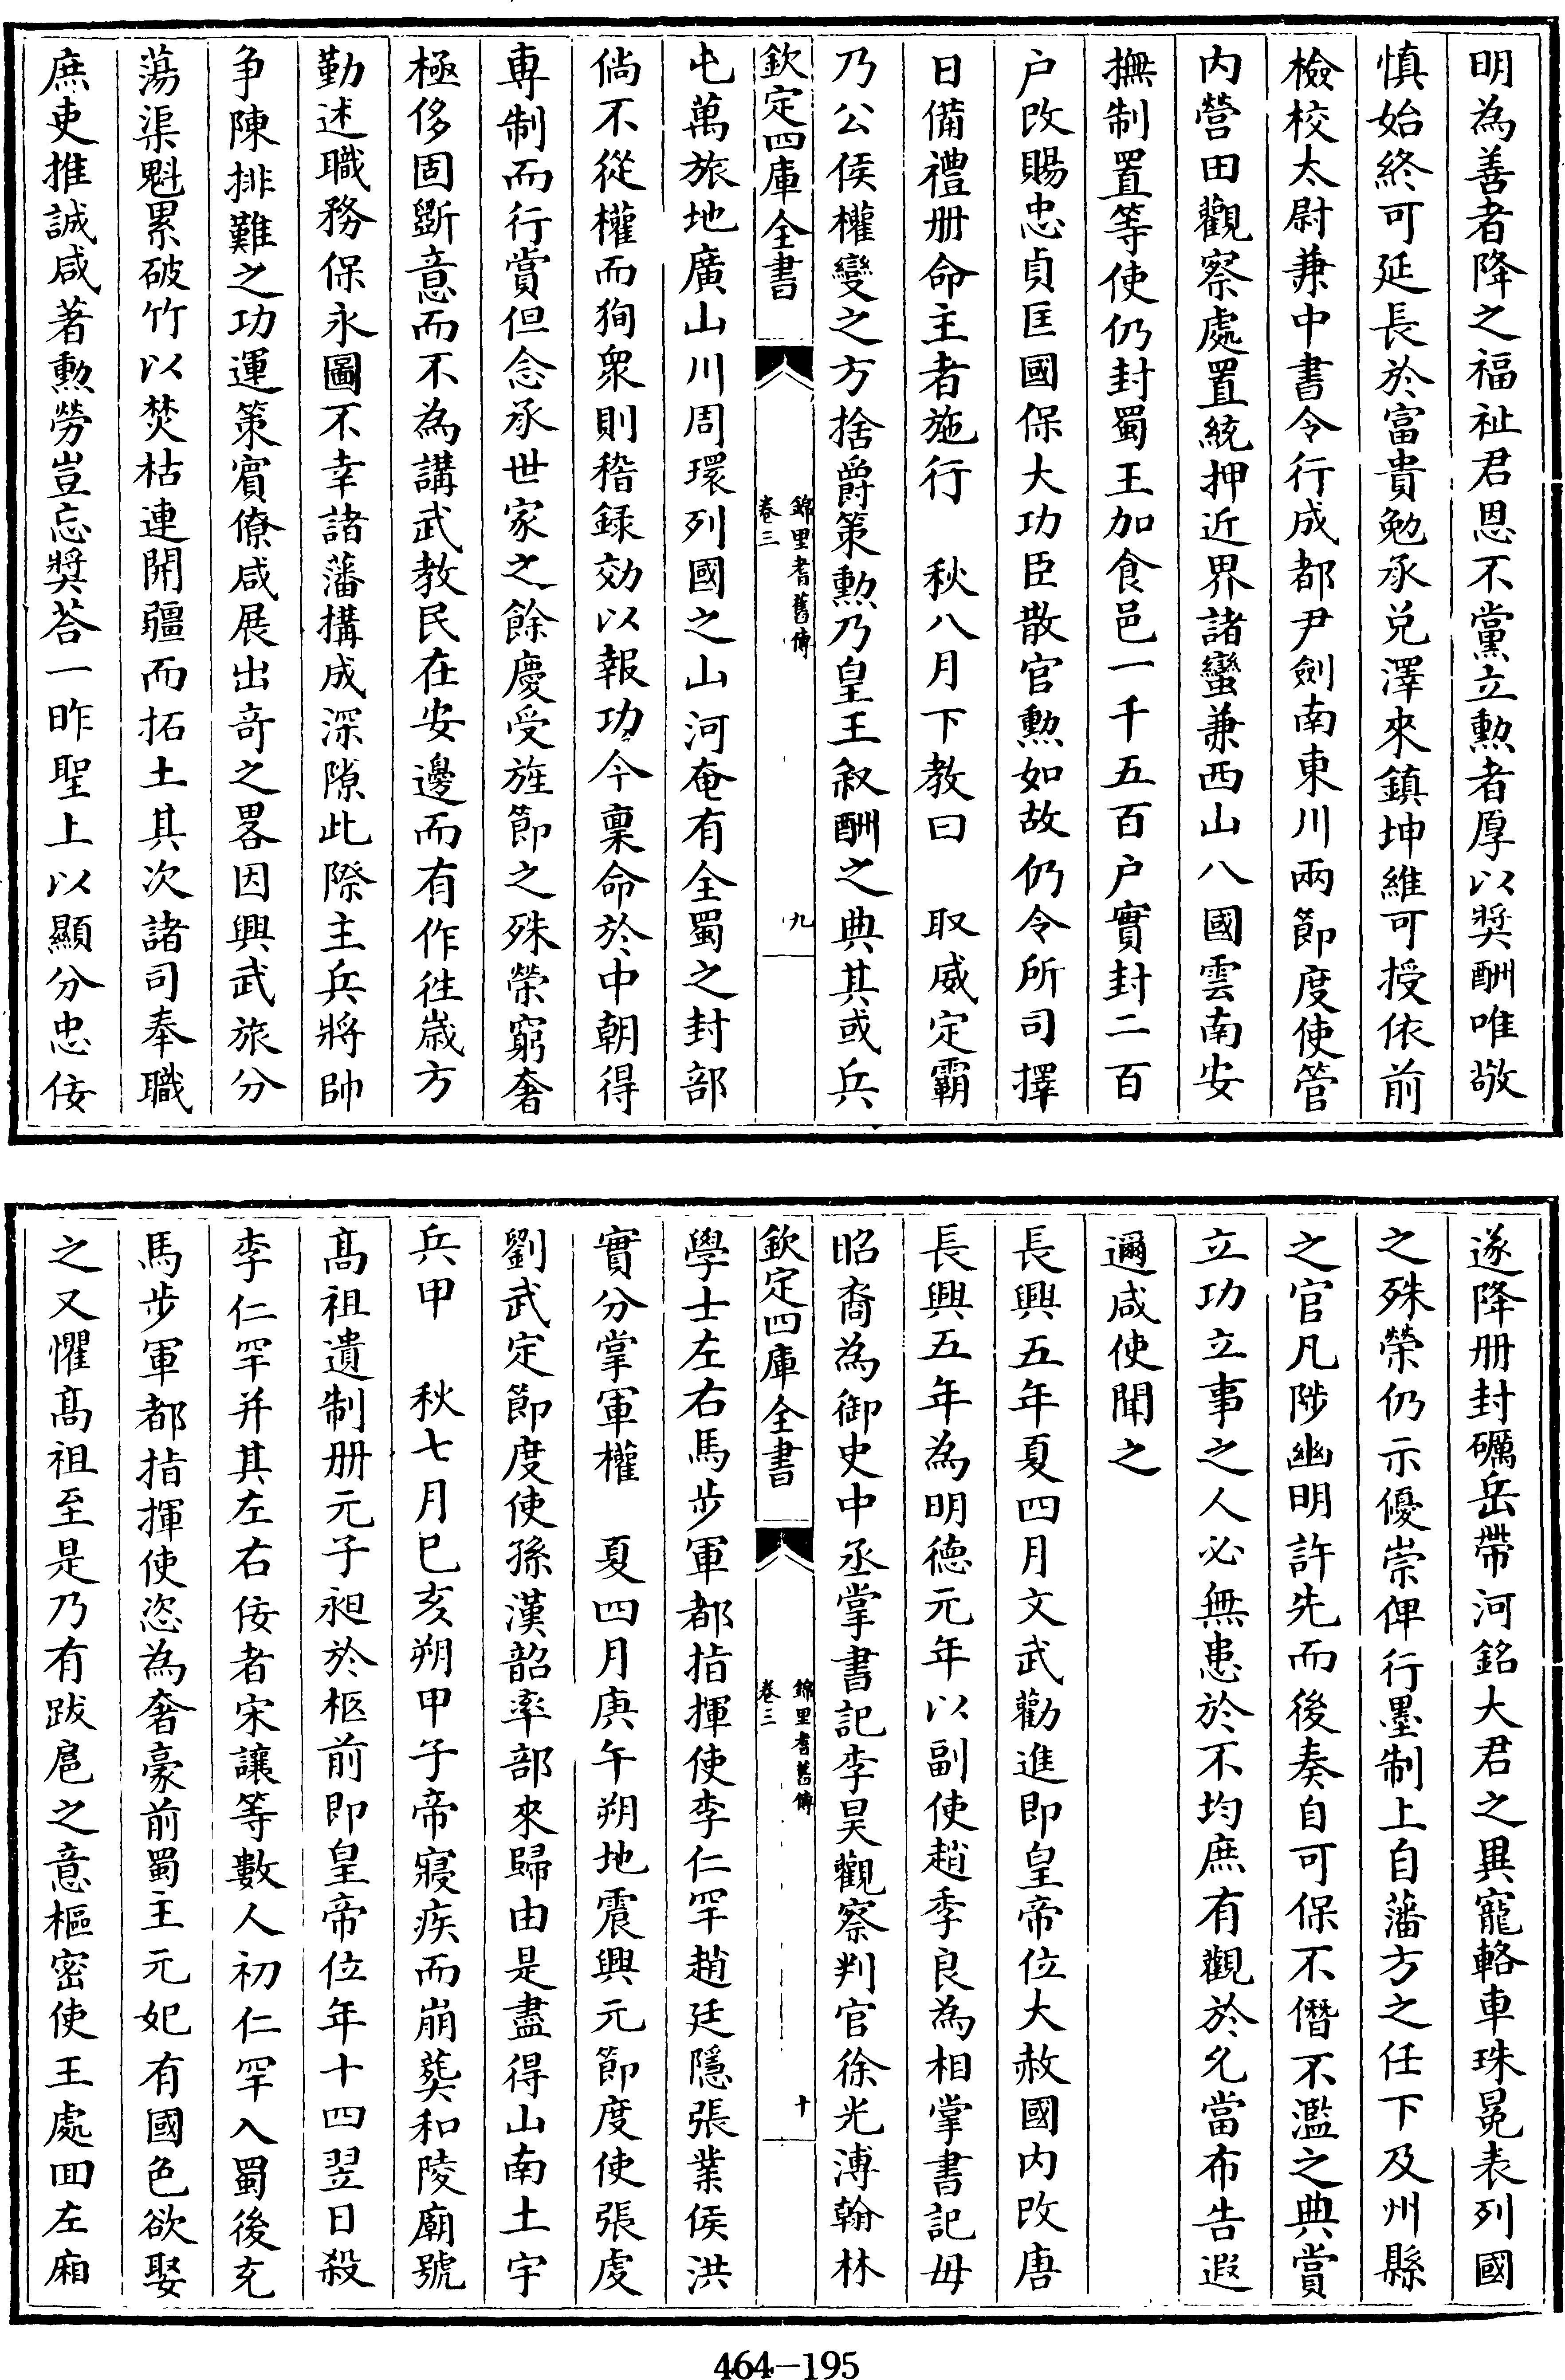 明為善者降之福祉君恩不黨立勲者厚以奬酬唯敬
慎始終可延長於富貴勉承兑澤來鎮坤維可授依前
檢校太尉兼中書令行成都尹劍南東川兩節度使管
内營田觀察處置統押近界諸蠻兼西山八國雲南安
撫制置等使仍封蜀王加食邑一千五百户實封二百
户改賜忠貞匡國保大功臣散官勲如故仍令所司擇
日備禮册命主者施行　秋八月下教曰　取威定霸
乃公侯權變之方捨爵策勲乃皇王叙酬之典其或兵
欽定四庫全書
錦里耆舊傳
卷三
九
屯萬旅地廣山川周環列國之山河奄有全蜀之封部
倘不從權而狥衆則稽録効以報功今稟命於中朝得
専制而行賞但念承世家之餘慶受旌節之殊榮窮奢
極侈固斷意而不為講武教民在安邊而有作徃歳方
勤述職務保永圖不幸諸藩搆成深隙此際主兵將帥
争陳排難之功運策賓僚咸展出奇之畧因興武旅分
蕩渠魁累破竹以焚枯連開疆而拓土其次諸司奉職
庶吏推誠咸著勲勞豈忘奬荅一昨聖上以顯分忠佞
遂降册封礪岳帶河銘大君之異寵輅車珠冕表列國
之殊榮仍示優崇俾行墨制上自藩方之任下及州縣
之官凡陟幽明許先而後奏自可保不僭不濫之典賞
立功立事之人必無患於不均庶有觀於允當布告遐
邇咸使聞之
長興五年夏四月文武勸進即皇帝位大赦國内改唐
長興五年為明德元年以副使趙季良為相掌書記毋
昭裔為御史中丞掌書記李昊觀察判官徐光溥翰林
欽定四庫全書
錦里耆舊傳
卷三
十
學士左右馬步軍都指揮使李仁罕趙廷隱張業侯洪
實分掌軍權　夏四月庚午朔地震興元節度使張虔
劉武定節度使孫漢韶率部來歸由是盡得山南土宇
兵甲　秋七月巳亥朔甲子帝寢疾而崩葬和陵廟號
髙祖遺制册元子昶於柩前即皇帝位年十四翌日殺
李仁罕并其左右佞者宋讓等數人初仁罕入蜀後充
馬步軍都指揮使恣為奢豪前蜀主元妃有國色欲娶
之又懼髙祖至是乃有跋扈之意樞密使王處回左廂
464—195